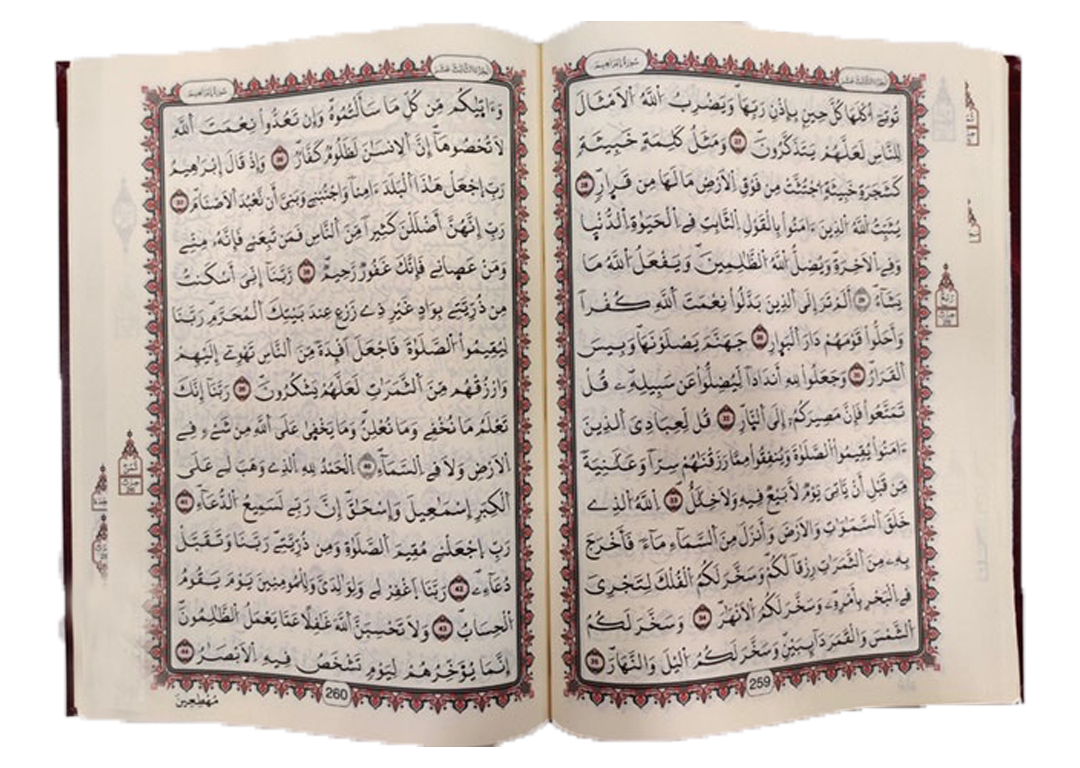 سُورَةُ إِبْرَاهِيمَ
الجزء الثالث عشر
تُوتِےٓ أُكْلَهَا كُلَّ حِينِۢ بِإِذْنِ رَبِّهَاۖ وَيَضْرِبُ اُ۬للَّهُ اُ۬لَامْثَالَ
لِلنَّاسِ لَعَلَّهُمْ يَتَذَكَّرُونَۖ 27 وَمَثَلُ كَلِمَةٍ خَبِيثَةٖ
كَشَجَرَةٍ خَبِيثَةٍ اُ۟جْتُثَّتْ مِن فَوْقِ اِ۬لَارْضِ مَا لَهَا مِن قَر۪ارٖۖ 28
يُثَبِّتُ اُ۬للَّهُ اُ۬لذِينَ ءَامَنُواْ بِالْقَوْلِ اِ۬لثَّابِتِ فِے اِ۬لْحَيَوٰةِ اِ۬لدُّنْي۪ا
وَفِے اِ۬لَاخِرَةِۖ وَيُضِلُّ اُ۬للَّهُ اُ۬لظَّٰلِمِينَۖ وَيَفْعَلُ اُ۬للَّهُ مَا
يَشَآءُۖ 29 أَلَمْ تَرَ إِلَي اَ۬لذِينَ بَدَّلُواْ نِعْمَتَ اَ۬للَّهِ كُفْراٗ
وَأَحَلُّواْ قَوْمَهُمْ دَارَ اَ۬لْبَوَارِ 30 جَهَنَّمَ يَصْلَوْنَهَاۖ وَبِيسَ
اَ۬لْقَرَارُۖ 31 وَجَعَلُواْ لِلهِ أَندَاداٗ لِّيُضِلُّواْ عَن سَبِيلِهِۦۖ قُلْ
تَمَتَّعُواْ فَإِنَّ مَصِيرَكُمُۥٓ إِلَي اَ۬لنّ۪ارِۖ 32 قُل لِّعِبَادِيَ اَ۬لذِينَ
ءَامَنُواْ يُقِيمُواْ اُ۬لصَّلَوٰةَ وَيُنفِقُواْ مِمَّا رَزَقْنَٰهُمْ سِرّاٗ وَعَلَٰنِيَةٗ
مِّن قَبْلِ أَنْ يَّاتِيَ يَوْمٞ لَّا بَيْعٞ فِيهِ وَلَا خِلَٰلٌۖ 33 اِ۬للَّهُ اُ۬لذِے
خَلَقَ اَ۬لسَّمَٰوَٰتِ وَالَارْضَ وَأَنزَلَ مِنَ اَ۬لسَّمَآءِ مَآءٗ فَأَخْرَجَ
بِهِۦ مِنَ اَ۬لثَّمَرَٰتِ رِزْقاٗ لَّكُمْۖ وَسَخَّرَ لَكُمُ اُ۬لْفُلْكَ لِتَجْرِيَ
فِے اِ۬لْبَحْرِ بِأَمْرِهِۦۖ وَسَخَّرَ لَكُمُ اُ۬لَانْهَٰرَۖ 34 وَسَخَّرَ لَكُمُ
اُ۬لشَّمْسَ وَالْقَمَرَ دَآئِبَيْنِۖ وَسَخَّرَ لَكُمُ اُ۬ليْلَ وَالنَّهَارَۖ 35
259
سُورَةُ إِبْرَاهِيمَ
الجزء الثالث عشر
وَءَات۪يٰكُم مِّن كُلِّ مَا سَأَلْتُمُوهُۖ وَإِن تَعُدُّواْ نِعْمَتَ اَ۬للَّهِ
لَا تُحْصُوهَآۖ إِنَّ اَ۬لِانسَٰنَ لَظَلُومٞ كَفَّارٞۖ 36 وَإِذْ قَالَ إِبْرَٰهِيمُ
رَبِّ اِ۪جْعَلْ هَٰذَا اَ۬لْبَلَدَ ءَامِناٗ وَاجْنُبْنِے وَبَنِيَّ أَن نَّعْبُدَ اَ۬لَاصْنَامَۖ 37
رَبِّ إِنَّهُنَّ أَضْلَلْنَ كَثِيراٗ مِّنَ اَ۬لنَّاسِۖ فَمَن تَبِعَنِے فَإِنَّهُۥ مِنِّے
وَمَنْ عَصَانِے فَإِنَّكَ غَفُورٞ رَّحِيمٞۖ 38 رَّبَّنَآ إِنِّيَ أَسْكَنتُ
مِن ذُرِّيَّتِے بِوَادٍ غَيْرِ ذِے زَرْعٍ عِندَ بَيْتِكَ اَ۬لْمُحَرَّمِ رَبَّنَا
لِيُقِيمُواْ اُ۬لصَّلَوٰةَۖ فَاجْعَلَ اَفْـِٕدَةٗ مِّنَ اَ۬لنَّاسِ تَهْوِےٓ إِلَيْهِمْ
وَارْزُقْهُم مِّنَ اَ۬لثَّمَرَٰتِ لَعَلَّهُمْ يَشْكُرُونَۖ 39 رَبَّنَآ إِنَّكَ
تَعْلَمُ مَا نُخْفِے وَمَا نُعْلِنُۖ وَمَا يَخْف۪يٰ عَلَي اَ۬للَّهِ مِن شَےْءٖ فِے
اِ۬لَارْضِ وَلَا فِے اِ۬لسَّمَآءِۖ 40 اِ۬لْحَمْدُ لِلهِ اِ۬لذِے وَهَبَ لِے عَلَي
اَ۬لْكِبَرِ إِسْمَٰعِيلَ وَإِسْحَٰقَۖ إِنَّ رَبِّے لَسَمِيعُ اُ۬لدُّعَآءِۖ 41
رَبِّ اِ۪جْعَلْنِے مُقِيمَ اَ۬لصَّلَوٰةِ وَمِن ذُرِّيَّتِےۖ رَبَّنَا وَتَقَبَّلْ
دُعَآءِۦۖ 42 رَبَّنَا اَ۪غْفِرْ لِے وَلِوَٰلِدَيَّ وَلِلْمُومِنِينَ يَوْمَ يَقُومُ
اُ۬لْحِسَابُۖ 43 وَلَا تَحْسِبَنَّ اَ۬للَّهَ غَٰفِلاً عَمَّا يَعْمَلُ اُ۬لظَّٰلِمُونَۖ
إِنَّمَا يُؤَخِّرُهُمْ لِيَوْمٖ تَشْخَصُ فِيهِ اِ۬لَابْصَٰرُ 44
260
مُهْطِعِينَ